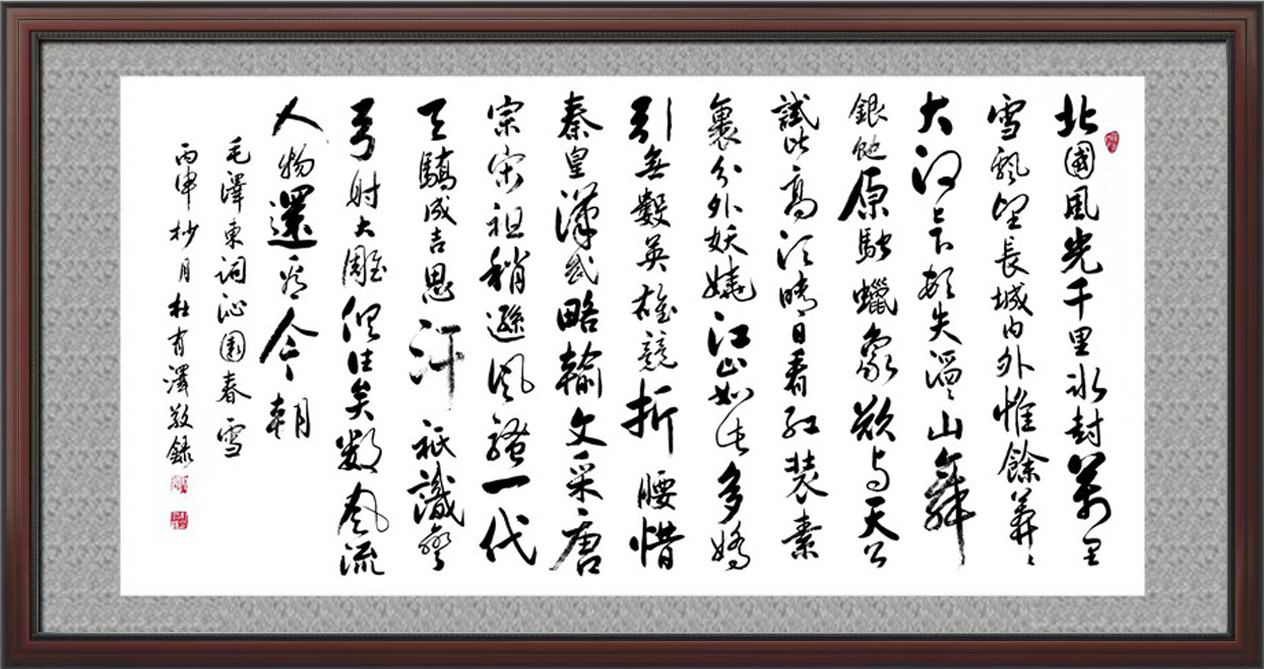 北國風光千里冰封萬里
雪飄望長城內外惟餘莽〻
大河上下頓失滔〻山舞
銀蛇原馳蠟象欲与天公
試比高須晴日看紅裝素
裹分外妖嬈江山如此多嬌
引無數英雄競折腰惜
秦皇漢武略輸文采唐
宗宋祖稍遜風騷一代
天驕成吉思汗祇識彎
弓射大雕俱往矣數風流
人物還看今朝
毛澤東詞沁園春雪
丙申杪月杜有澤敬録